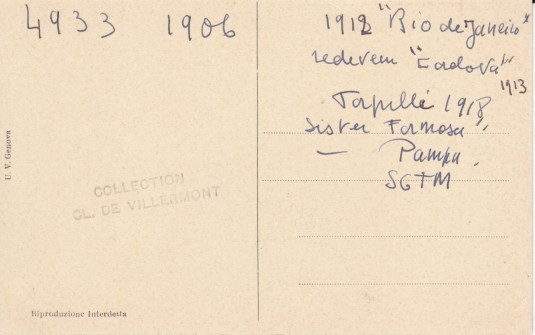 4933 1906
1912 "Rio de Janeiro"
redevem "Cordova"
1913
Torpillé 1918
Sister Formosa
— Pampa.
SGTM
U. V. Genova
COLLECTION
CL. DE VILLERMONT
Riproduzione Interdetta